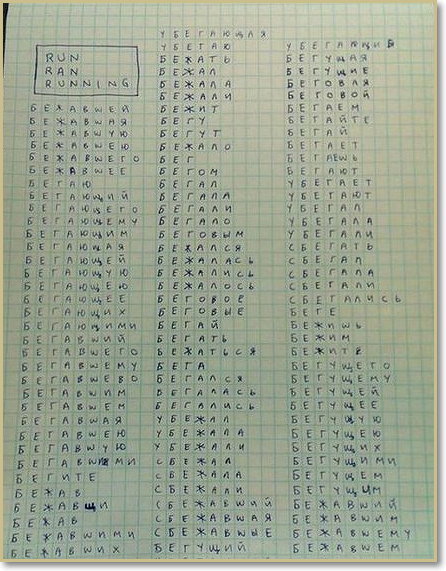 RUN
RAN
RUNNING
БЕЖАВШЕЙ
БЕЖАВШАЯ
БЕЖАВШУЮ
БЕЖАВШЕЮ
БЕЖАВШЕГО
БЕЖАВШЕЕ
БЕГАЮ
БЕГАЮЩИЙ
БЕГАЮЩЕГО
БЕГАЮЩЕМУ
БЕГАЮЩИМ
БЕГАЮЩАЯ
БЕГАЮЩЕЙ
БЕГАЮЩУЮ
БЕГАЮЩЕЮ
БЕГАЮЩЕЕ
БЕГАЮЩИХ
БЕГАЮЩИМИ
БЕГАВШИЙ
БЕГАВШЕГО
БЕГАВШЕМУ
БЕГАВШЕВО
БЕГАВШИМ
БЕГАВШЕМ
БЕГАВШАЯ
БЕГАВШЕЮ
БЕГАВШУЮ
БЕГАВШИМИ
БЕГИТЕ
БЕЖАВ
БЕЖАВЩИ
БЕЖАВ
БЕЖАВШИМИ
БЕЖАВШИХ
УБЕГАЮЩАЯ
УБЕГАЮ
БЕЖАТЬ
БЕЖАЛ
БЕЖАЛА
БЕЖАЛИ
БЕЖИТ
БЕГУ
БЕГУТ
БЕЖАЛО
БЕГ
БЕГОМ
БЕГАЛ
БЕГАЛА
БЕГАЛИ
БЕГАЛО
БЕГОВЫМ
БЕЖАЛСЯ
БЕЖАЛАСЬ
БЕЖАЛИСЬ
БЕЖАЛОСЬ
БЕГОВОЕ
БЕГОВЫЕ
БЕГАЙ
БЕГАТЬ
БЕЖАТЬСЯ
БЕГА
БЕГАЛСЯ
БЕГАЛАСЬ
БЕГАЛИСЬ
УБЕЖАЛ
УБЕЖАЛА
УБЕЖАЛИ
СБЕЖАЛ
СБЕЖАЛА
СБЕЖАЛИ
СБЕЖАВШИЙ
СБЕЖАВШАЯ
СБЕЖАВШЫЕ
БЕГУЩИЙ
УБЕГАЮЩИЙ
БЕГУЩАЯ
БЕГУЩИЕ
БЕГОВАЯ
БЕГОВОЙ
БЕГАЕМ
БЕГАЙТЕ
БЕГАЙ
БЕГАЕТ
БЕГАЕШЬ
БЕГАЮТ
УБЕГАЕТ
УБЕГАЮТ
УБЕГАЛ
УБЕГАЛА
УБЕГАЛИ
СБЕГАТЬ
СБЕГАЛ
СБЕГАЛА
СБЕГАЛИ
СБЕГАЛИСЬ
БЕГЕ
БЕЖИШЬ
БЕЖИМ
БЕЖИТЕ
БЕГУЩЕГО
БЕГУЩЕМУ
БЕГУЩЕЙ
БЕГУЩЕЕ
БЕГУЩУЮ
БЕГУЩЕЮ
БЕГУЩИХ
БЕГУЩИМИ
БЕГУЩЕМ
БЕГУЩИМ
БЕЖАВШИЙ
БЕЖАВШИМ
БЕЖАВШЕМУ
БЕЖАВШЕМ